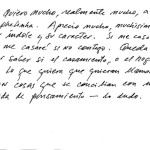 Quiero mucho, realmente mucho, a
Aprecio mucho, muchísimo
índole y su carácter. Si me casa
me casaré si no contigo. Queda
saber si el casamiento, o el hog
lo que quiera que quieran llamar
cosas que se concilian con m
de pensamiento — lo dudo.